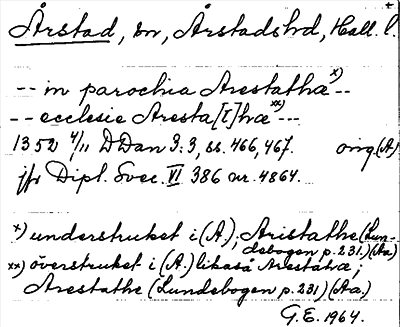 Årstad, sn, Årstads hd, Hall. l.
-- in parochia Arestathæ x) --
-- ecclesie Aresta[t]hæ xx) --
1352 4/11 DDan 3:3, ss. 466, 467. orig. (A)
jfr Dipl. Svec. VI 386 nr. 4864.
x) understruket i (A); Aristathe (Lun-
debogen p. 231.) (Aa)
xx) överstruket i (A.) likaså Arestatæ;
Arestathe (Lundebogen p. 231) (Aa.)
G.E. 1964.